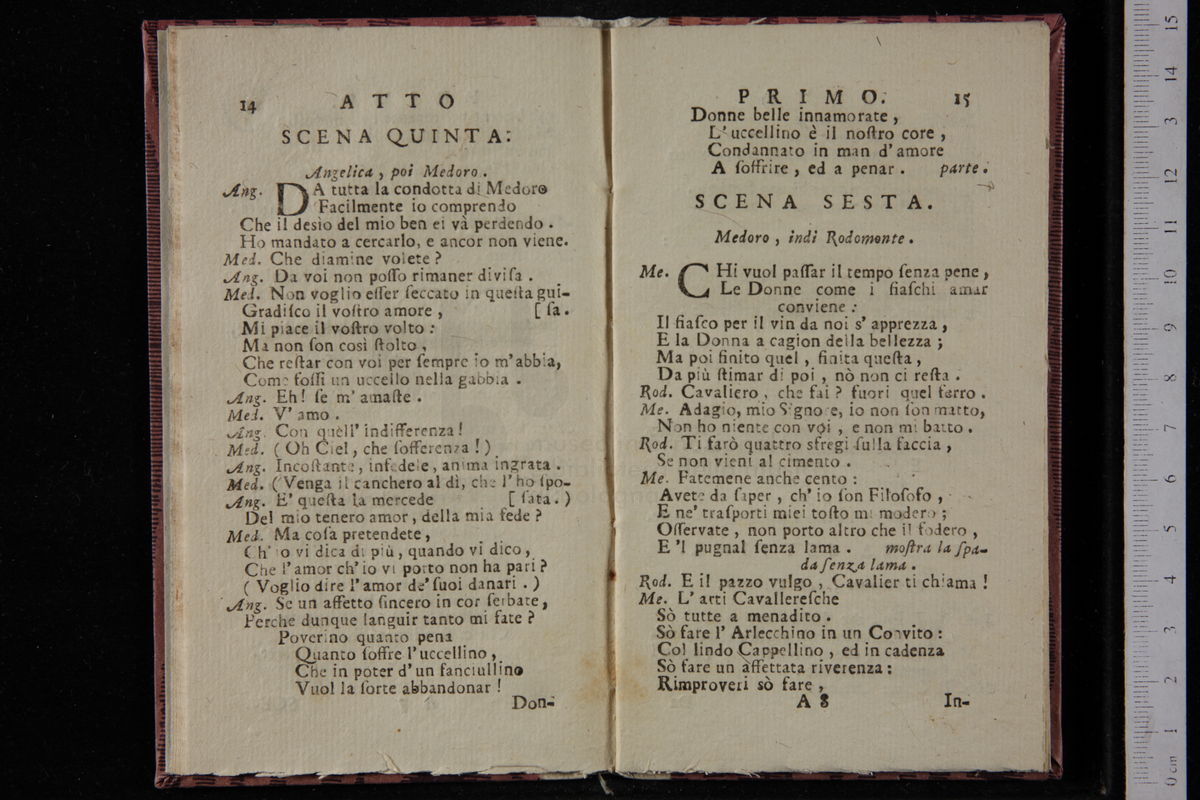 14 ATTO
SCENA QUINTA:
Angelica, poi Medoro.
Ang. DA tutta la condotta di Medoro
Facilmente io comprendo
Che il desìo del mio ben ei và perdendo.
Ho mandato a cercarlo, e ancor non viene.
Med. Che diamine volete?
Ang. Da voi non poſſo rimaner diviſa.
Med. Non voglio eſſer ſeccato in queſta gui-
Gradiſco il voſtro amore, [ſa.
Mi piace il voſtro volto:
Ma non ſon così ſtolto,
Che reſtar con voi per ſempre io m'abbia,
Come foſſi un uccello nella gabbia.
Ang. Eh! ſe m'amaſte.
Med. V'amo.
Ang. Con quell'indifferenza!
Med. (Oh Ciel, che ſofferenza!)
Ang. Incoſtante, infedele, anima ingrata.
Med. (Venga il canchero al dì, che l'ho ſpo-
Ang. E' queſta la mercede [ſata.)
Del mio tenero amor, della mia fede?
Med. Ma coſa pretendete,
Ch'io vi dica di più, quando vi dico,
Che l'amor ch'io vi porto non ha pari?
(Voglio dire l'amor de' ſuoi danari.)
Ang. Se un affetto ſincero in cor ſerbate,
Perche dunque languir tanto mi fate?
Poverino quanto pena
Quanto ſoffre l'uccellino,
Che in poter d'un fanciullino
Vuol la ſorte abbandonar!
Don-
PRIMO. 15
Donne belle innamorate,
L'uccellino è il noſtro core,
Condannato in man d'amore
A ſoffrire, ed a penar. parte.
SCENA SESTA.
Medoro, indi Rodomonte.
Me. CHi vuol paſſar il tempo ſenza pene,
Le Donne come i fiaſchi amar
conviene:
Il fiaſco per il vin da noi s'apprezza,
E la Donna a cagion della bellezza;
Ma poi finito quel, finita queſta,
Da più ſtimar di poi, nò non ci reſta.
Rod. Cavaliero, che fai? fuori quel ferro.
Me. Adagio, mio Signore, io non ſon matto,
Non ho niente con voi, e non mi batto.
Rod. Ti farò quattro sfregi ſulla faccia,
Se non vieni al cimento.
Me. Fatemene anche cento:
Avete da ſaper, ch'io ſon Filoſofo,
E ne' traſporti miei toſto mi modero;
Oſſervate, non porto altro che il fodero,
E 'l pugnal ſenza lama. moſtra la ſpa-
da ſenza lama.
Rod. E il pazzo vulgo, Cavalier ti chiama!
Me. L'arti Cavallereſche
Sò tutte a menadito.
Sò fare l'Arlecchino in un Convito:
Col lindo Cappellino, ed in cadenza
Sò fare un affettata riverenza:
Rimproveri sò fare,
A 8 In-
15
14
3
12
11
10
9
8
7
6
5
4
3
2
1
0 cm